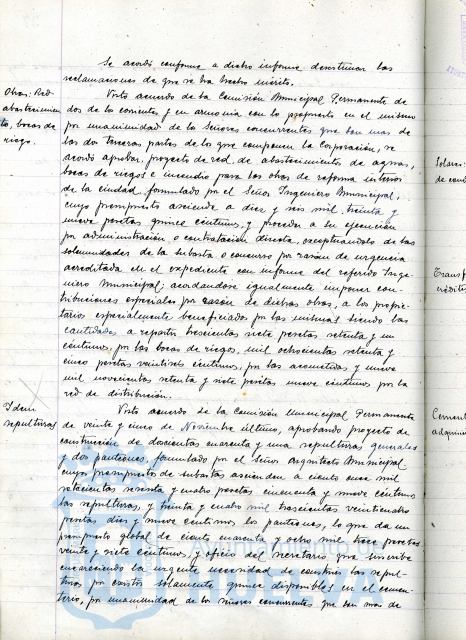 Se acordó conforme a dicho informe desestimar las
reclamaciones de que se ha hecho mérito.
Obras: Red
abastecimien
to, bocas de
riego.
Visto acuerdo de la Comisión Municipal Permanente de
dos de los corrientes, y en armonía con lo propuesto en el mismo
por unanimidad de los Señores concurrentes que son mas de
las dos terceras partes de los que componen la Corporación, se
acordó aprobar proyecto de red de abastecimientos de aguas,
bocas de riegos e incendio para las obras de reforma interior
de la ciudad formulado por el Señor Ingeniero Municipal,
cuyo presupuesto asciende a diez y seis mil, treinta y
nueve pesetas quince céntimos, y proceder a su ejecución
por administración o contratación directa, exceptuándolo de las
solemnidades de la subasta o concurso por razón de urgencia
acreditada en el expediente con informe del referido Inge-
niero Municipal; acordándose igualmente imponer con-
tribuciones especiales por razón de dichas obras, a los propie-
tarios especialmente beneficiados por las mismas siendo las
cantidades a repartir trescientas siete pesetas setenta y un
céntimos, por las bocas de riegos, mil ochocientas setenta y
cinco pesetas veintiseis céntimos, por las acometidas y nueve
mil novecientas setenta y siete pesetas nueve céntimos por la
red de distribución.
Idem
sepulturas
Visto acuerdo de la Comisión Municipal Permanente
de veinte y cinco de Noviembre último, aprobando proyecto de
construcción de doscientas cuarenta y una sepulturas generales
y dos panteones, formulado por el Señor Arquitecto Municipal
cuyo presupuesto de subastas ascienden a ciento once mil
setecientas sesenta y cuatro pesetas cincuenta y nueve céntimos
las sepulturas, y treinta y cuatro mil trescientas veinticuatro
pesetas diez y nueve céntimos los panteones, lo que da un
presupuesto global de ciento cuarenta y ocho mil trece pesetas
veinte y siete céntimos y oficio del Secretario que suscribe
encareciendo la urgente necesidad de construir las sepul-
turas por existir solamente quince disponibles en el cemen-
terio, por unanimidad de los señores concurrentes que son mas de
Solares:
de con
Transf
crédito
Cement
adquis
HUELVA